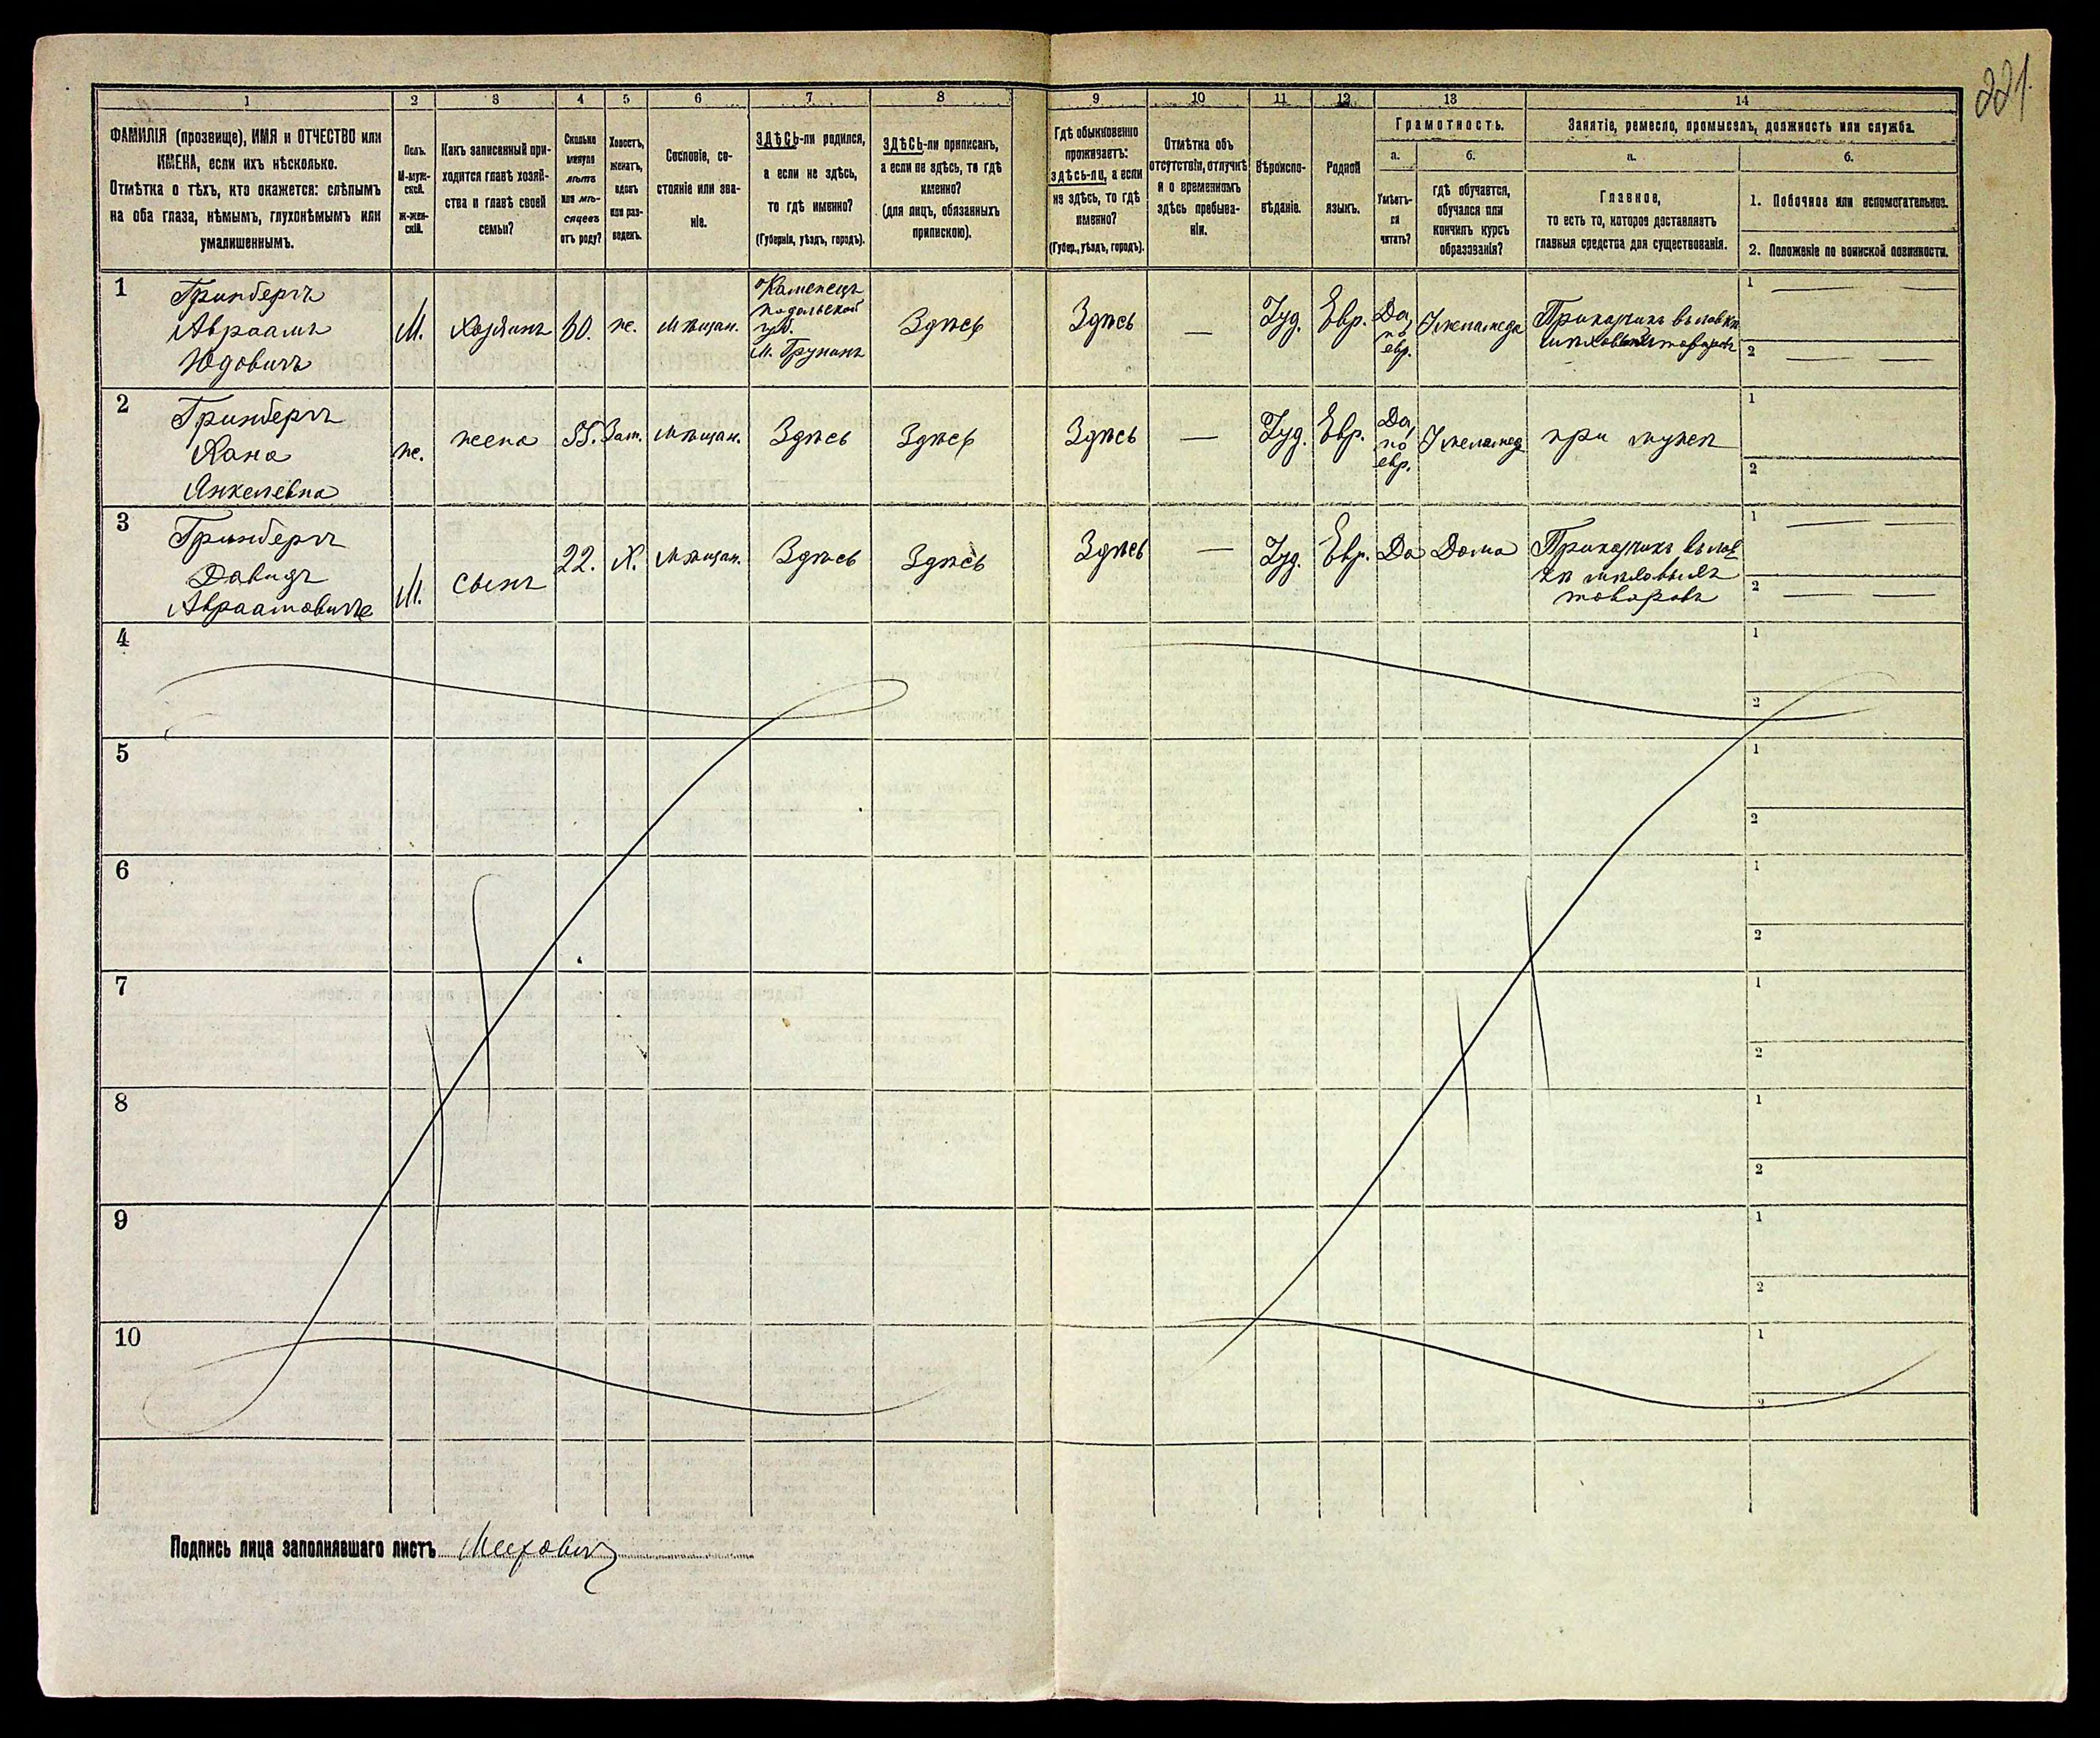 221.
1 2 3 4 5 6 7 8 9 10 11 12 13 14
ФАМИЛІЯ (прозвище), ИМЯ и ОТЧЕСТВО или
ИМЕНА, если ихъ нѣсколько.
Отмѣтка о тѣхъ, кто окажется: слѣпымъ
на оба глаза, нѣмымъ, глухонѣмымъ или
умалишеннымъ.
Полъ.
М-муж-
ской.
Ж-жен-
скій.
Какъ записанный при-
ходится главѣ хозяй-
ства и главѣ своей
семьи?
Сколько
минуло
лѣтъ
или мѣ-
сяцевъ
отъ роду?
Холостъ,
женатъ,
вдовъ
или раз-
веденъ.
Сословіе, со-
стояніе или зва-
ніе.
ЗДѢСЬ-ли родился,
а если не здѣсь,
то гдѣ именно?
(Губернія, уѣздъ, городъ).
ЗДѢСЬ-ли приписанъ,
а если не здѣсь, то гдѣ
именно?
(для лицъ, обязанныхъ
припискою).
Гдѣ обыкновенно
проживаетъ:
здѣсь-ли, а если
не здѣсь, то гдѣ
именно?
(Губер., уѣздъ, городъ).
Отмѣтка объ
отсутствіи, отлучкѣ
и о временномъ
здѣсь пребыва-
ніи.
Вѣроиспо-
вѣданіе.
Родной
языкъ.
Грамотность.
а.
Умѣетъ-
ли
читать?
б.
гдѣ обучается,
обучался или
кончилъ курсъ
образованія?
Занятіе, ремесло, промыселъ, должность или служба.
а.
Главное,
то есть то, которое доставляетъ
главныя средства для существованія.
б.
1. Побочное или вспомогательное.
2. Положеніе по воинской повинности.
1
Гринбергъ
Авраамъ
Юдовичъ
М.
Хозяинъ
60.
ж.
Мѣщан.
Каменецъ
Подольской
губ.
М.
Здѣсь
Здѣсь
—
Іуд.
Евр.
Да,
по
евр.
У меламеда
Приказчикъ въ лавкѣ
мѣховыхъ товаровъ
1
2
2
Гринбергъ
Хана
Янкелевна
ж.
жена
55.
Зам.
Мѣщан.
Здѣсь
Здѣсь
Здѣсь
—
Іуд.
Евр.
Да,
по
евр.
У меламед
при мужѣ
1
2
3
Гринбергъ
Давидъ
Авраамовичъ
М.
сынъ
22.
Х.
Мѣщан.
Здѣсь
Здѣсь
Здѣсь
—
Іуд.
Евр.
Да
Дома
Приказчикъ въ лав
кѣ мѣховыхъ
товаровъ
1
2
4
1
2
5
1
2
6
1
2
7
1
2
8
1
2
9
1
2
10
1
2
Подпись лица заполнявшаго листъ